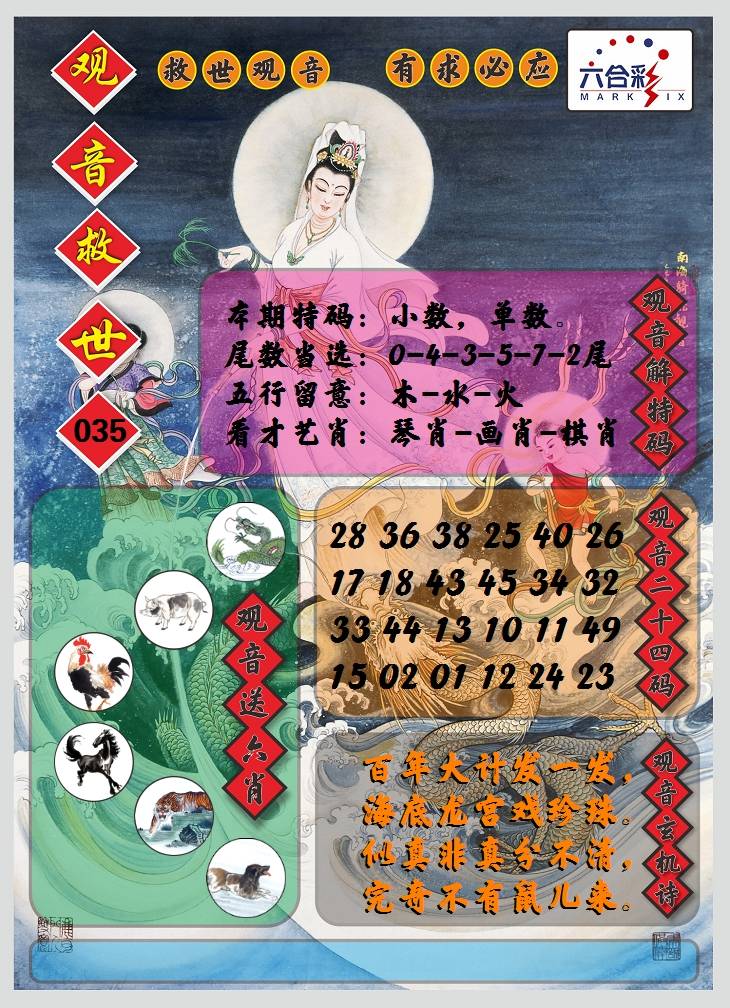 观音救世
035
救世观音 有求必应
六合彩
MARK SIX
本期特码：小数，单数。
尾数当选：0-4-3-5-7-2尾
五行留意：木-水-火
看才艺肖：琴肖-画肖-棋肖
观音解特码
28 36 38 25 40 26
17 18 43 45 34 32
33 44 13 10 11 49
15 02 01 12 24 23
观音二十四码
观音送六肖
百年大计发一发，
海底龙宫戏珍珠。
似真非真分不清，
完奇不有鼠儿来。
观音玄机诗